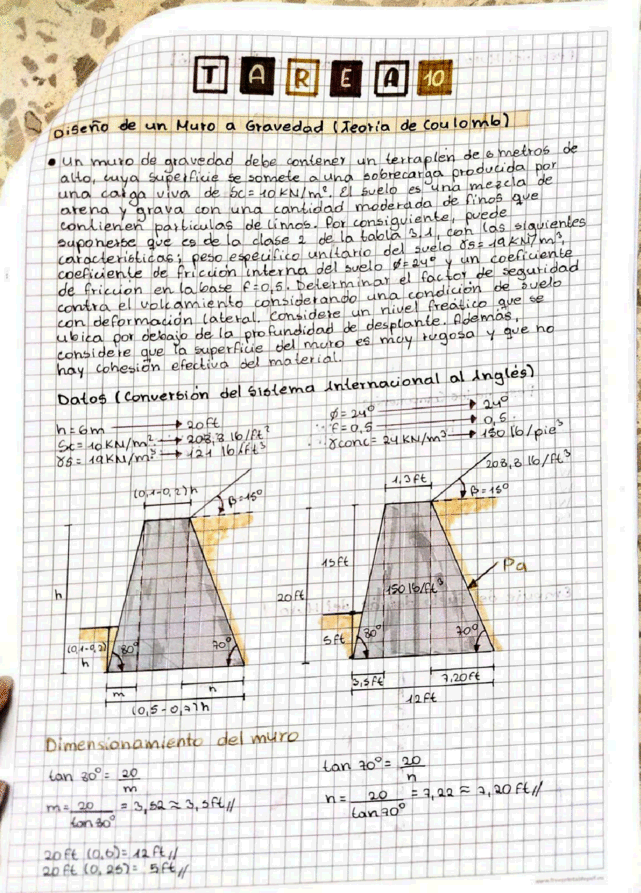 TAREA 10
Diseño de un Muro a Gravedad (Teoría de Coulomb)
• Un muro de gravedad debe contener un terraplén de 6 metros de
alto, cuya superficie se somete a una sobrecarga producida por
una carga viva de Sc=10KN/m². El suelo es una mezcla de
arena y grava con una cantidad moderada de finos que
contienen partículas de limos. Por consiguiente, puede
suponerse que es de la clase 2 de la tabla 3.1, con las siguientes
características; peso específico unitario del suelo γs=19KN/m³,
coeficiente de fricción interna del suelo φ=24° y un coeficiente
de fricción en la base f=0,5. Determinar el factor de seguridad
contra el volcamiento considerando una condición de suelo
con deformación lateral. Considere un nivel freático que se
ubica por debajo de la profundidad de desplante. Además,
considere que la superficie del muro es muy rugosa y que no
hay cohesión efectiva del material.
Datos (Conversión del Sistema Internacional al Inglés)
h=6m → 20ft
Sc=10KN/m² → 208,8 lb/ft²
γs=19KN/m³ → 121 lb/ft³
φ=24° → 24°
f=0,5 → 0,5
γconc=24KN/m³ → 150 lb/pie³
(0,1-0,2)h
β=15°
h
(0,1-0,2)
h
80°
70°
m
n
(0,5-0,7)h
208,8 lb/ft³
1,3ft
β=15°
15ft
20ft
150lb/ft³
Pa
5ft
80°
70°
3,5ft
7,20ft
12ft
Dimensionamiento del muro
tan 80°= 20/m
m= 20/tan80° = 3,52 ≈ 3,5ft//
20ft (0,6)= 12ft//
20ft (0,25)= 5ft//
tan 70°= 20/n
n= 20/tan70° = 7,22 ≈ 7,20ft//